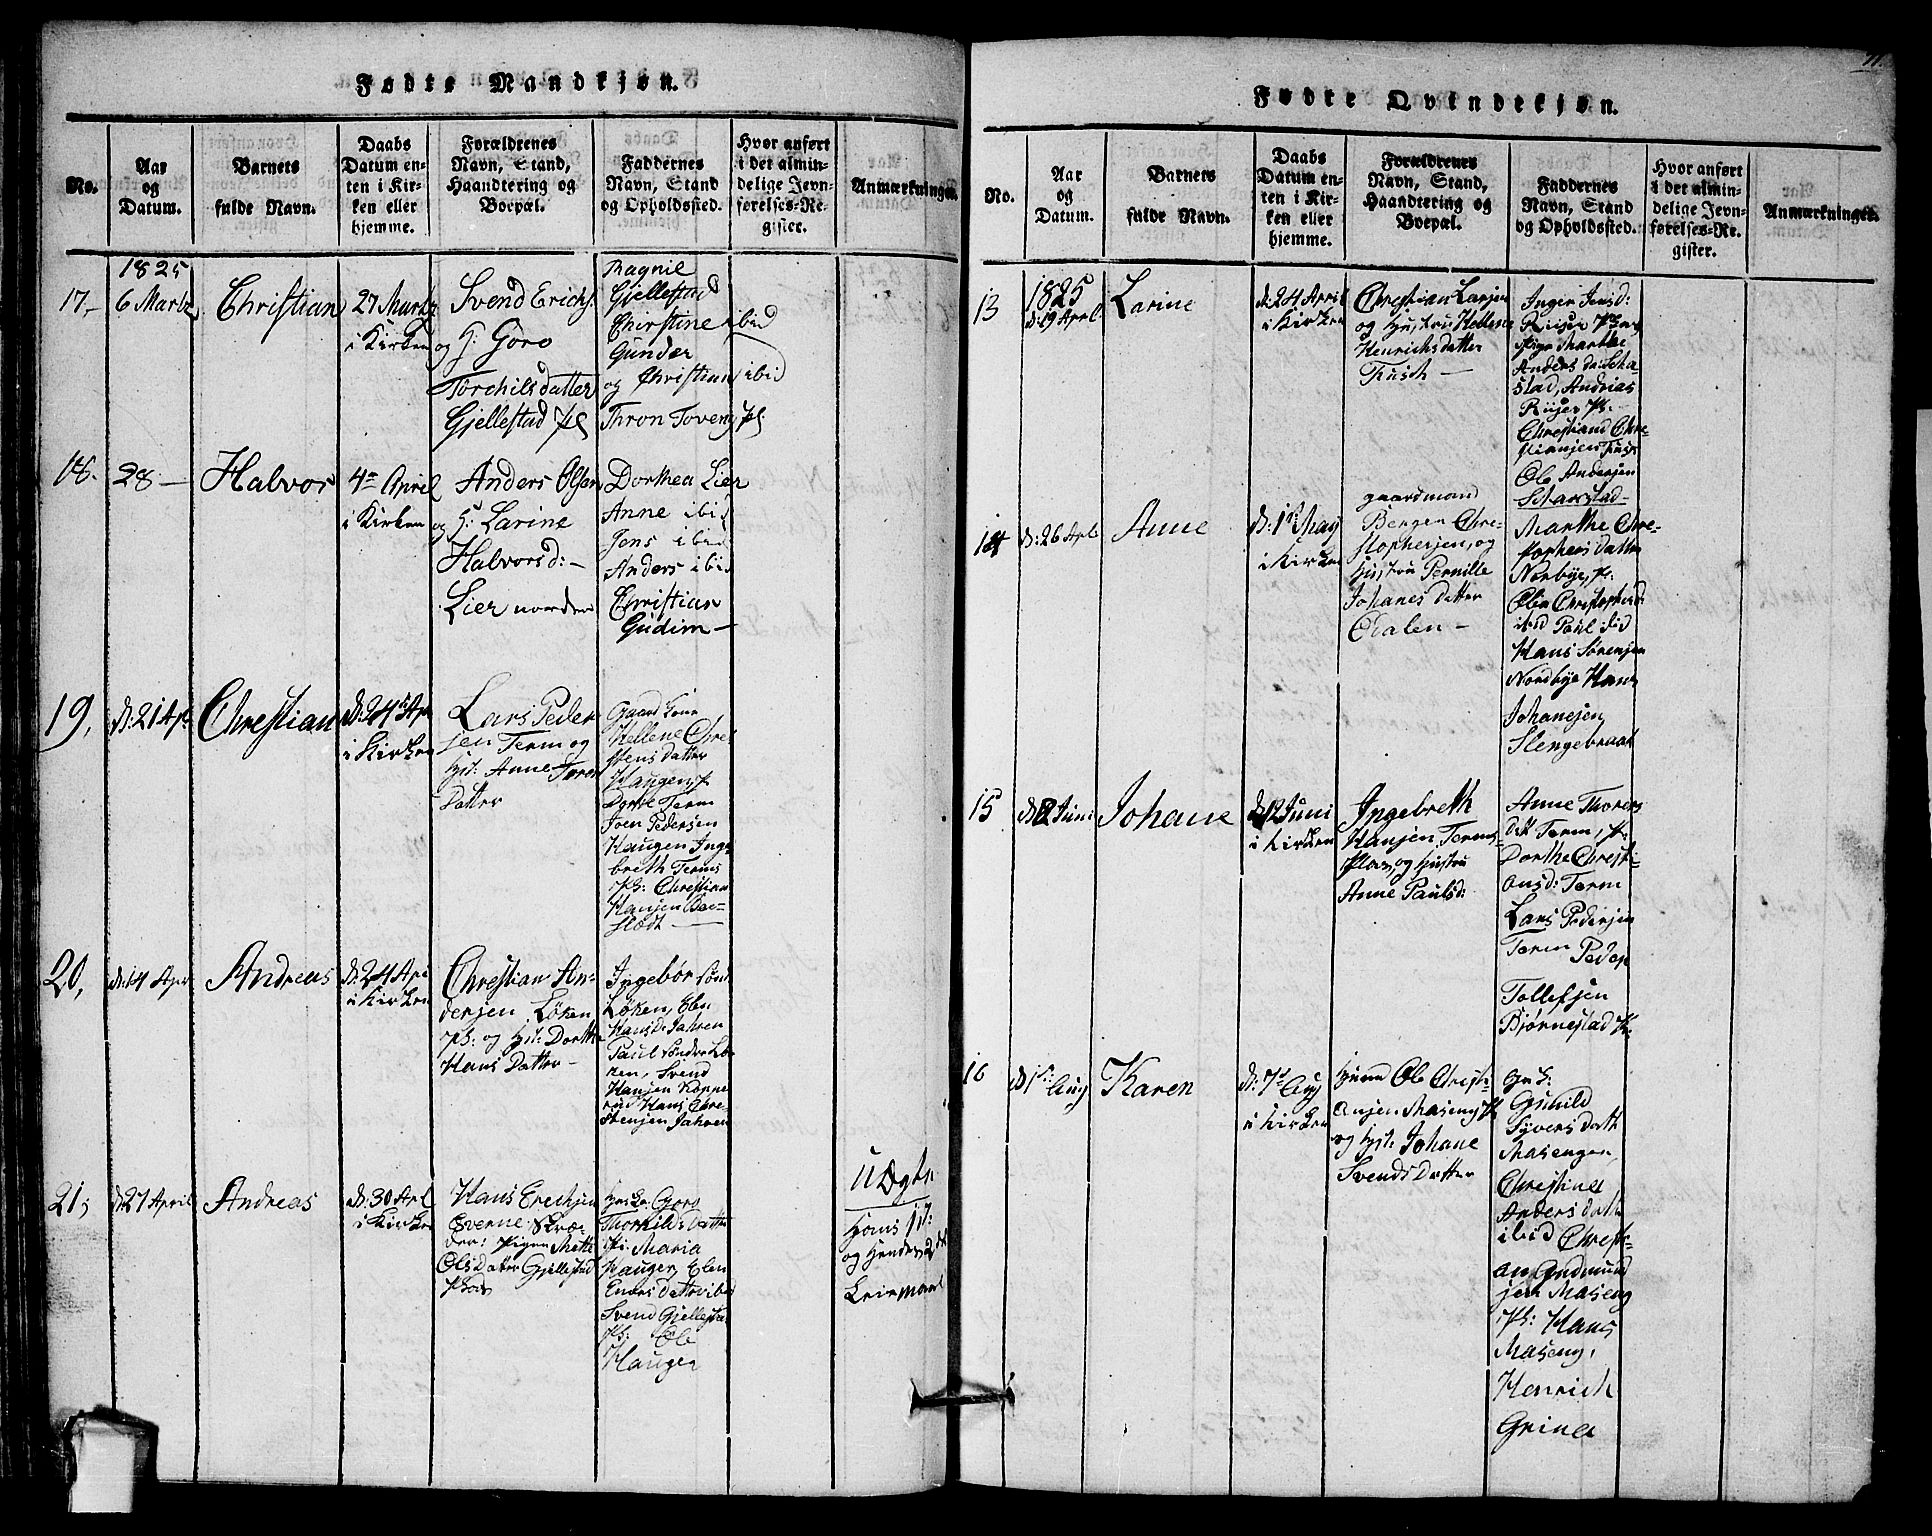 Fødte Mandkjøn.
No.
Aar
og
Datum.
Barnets
fulde Navn.
Daabs
Datum en-
ten i Kir-
ken eller
hjemme.
Forældrenes
Navn, Stand,
Haandtering og
Boepæl.
Faddernes
Navn, Stand
og Opholdssted.
Hvor anført
i det almin-
delige Jevn-
førelses-Re-
gister.
Anmærkninger.
1825
17-
6 Martz
Christian
27 Martz
i Kirken
Svend Erichs:
og H: Goro
Torchilsdatter
Gjellestad Pl
Ragnil
Gjellestad
Chirstine ibid
Gunder
og Christian ibid
Thron Toveng Pl:
18.
28-
Halvor
4de April
i Kirken
Anders Olsen
og H: Larine
Halvorsd:-
Lier nordre
Dorthea Lier
Anne ibid
Jens ibid
Anders ibid
Christian
Gudim-
19,
d: 21 Ap:
Chrestian
d: 24de Apr
i Kirken
Lars Peder
sen Term og
Hst: Anne Tores
Datter
Gaard Kone
Hellene Chre
stens datter
Haugen, P
Dorte Term
Joen Pedersen
Haugen Inge
breth Terms
Pl: Chrestian
Hansen Bae-
flødt-
20,
d: 14 Apr
Andreas
d: 24 Apr
i Kirken
Chrestian An-
dersen Løken
Pl: og Hst: Dorthe
Hans Datter-
Ingebor sønd
Løken, Elen
Hansd: Jahren
Paul sønder Lø-
ken, Svend
Hansen Koppe
rud Hans Chre-
stensen Jahren
21,
d 27 April
Andreas
d: 30 Apl
i Kirken
Hans Erechsen
Sverne. Skræ-
der: Pigen Mette
Ols Datter Gjellestad
Thorkilds Datter
Pi. Maria
Haugen, Elen
Enersdatter ibid
Svend Gjellestad
Pl: Ole
Haugen
U Ægte.
Hans 1st:
og Hendes 2de
Leiermaal
Fødte Qvindekjøn.
No.
Aar
og
Datum.
Barnets
fulde Navn.
Daabs
Datum en-
ten i Kir-
ken eller
hjemme.
Forældrenes
Navn, Stand,
Haandtering og
Boepæl.
Faddernes
Navn, Stand
og Opholdssted.
Hvor anført
i det almin-
delige Jevn-
førelses-Re-
gister.
Anmærkninger.
1825
13
d: 19 Aprl
Larine
d: 24 April
i Kirken
Chrestian Larsen
og Hustru Hellene
Henrichsdatter
Trusch-
Inger Jensd:
Riiser
Pige Marthe
Anders d: Scha-
stad, Andrias
Riiser Pl:
Chrestiand Chre-
stiansen
Ole Andersen
Scharstad-
14
d: 26 Apl
Anne
d: 1st May
i Kirken
gaardmand
Bergen Chre-
stophersen, og
Hustru Pernille
Johanes datter
Odalen-
Marthe Chre-
stophers datter
Norbye, P:
Olia Christophersd:
ibid Paul ibid
Hans Sørensen
Nordbye Hans
Johanesen
Slengebraat
15
d: 2 Juni
Johane
d: 12 Juni
i Kirken
Ingebreth
Hansen, Terms-
Plads, og Hustru
Anne Paulsd:
Anne Thorers
datt Term, P:
Dorthe Christi-
ansd: Term
Lars Pedersen
Term Peder
Tollefsen
Bjørnestad P:
16
d 1st: Aug
Karen
d: 7de Aug
i Kirken
Ole Christi-
ansen Maseng Pl
og Hst: Johane
Svends Datter
Gunild
Syvers Datt
Masengen,
Christine
Anders datt
ibid Christi-
an Gudmund
sen Maseng
Pl: Hans
Maseng,
Henrich
Grine